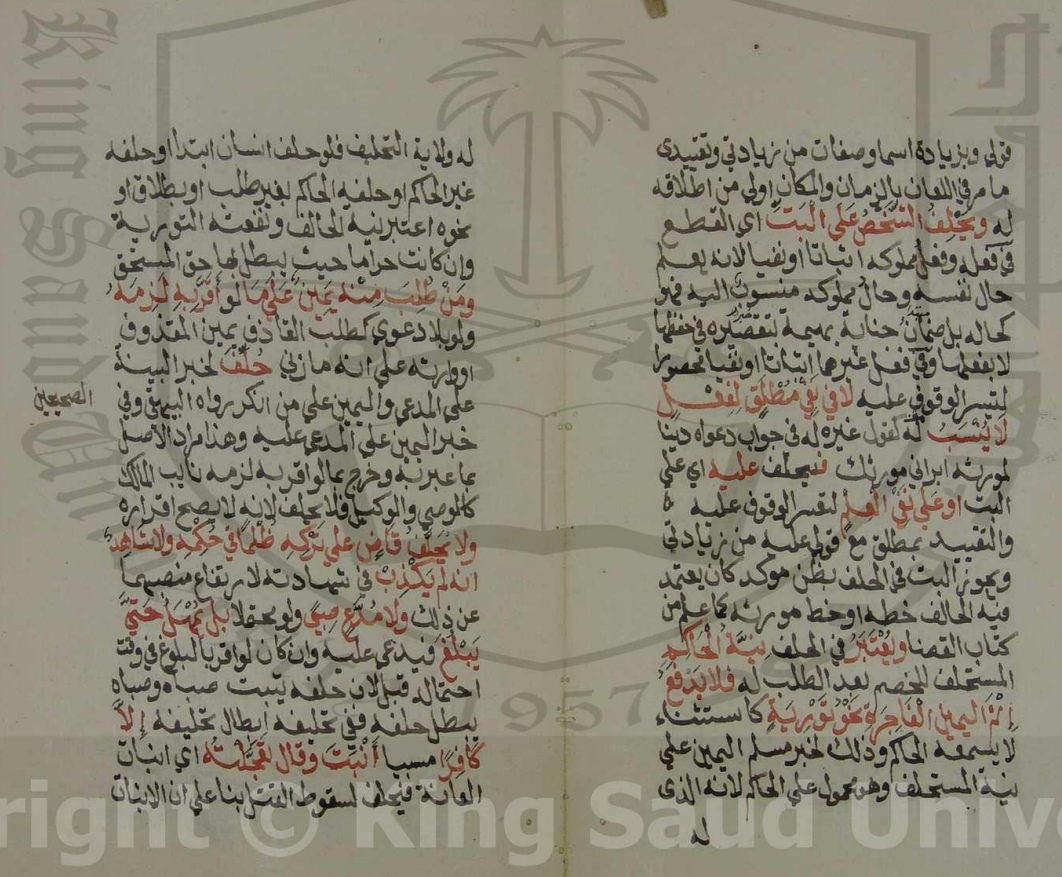 قولي وبزيادة اسما وصفات من زيادتي وتقييدي
ما مر في اللعان بالزمان والمكان اولي من اطلاقه
له ويحلف الشخص علي البت اي القطع
في فعله وفعل مملوكه اثباتا او نفيا لانه يعلم
حال نفسه وحال مملوكه منسوب اليه فهو
كحاله بل ضمان جناية بهيمة بتقصيره في حفظها
لا بفعلها وفي فعل غيرهما اثباتا او نفيا محصورا
لتيسر الوقوف عليه لا في نفي مطلق لفعل
لا ينسب له كقول غيره له في جواب دعواه دينا
لمورثه ابراني مورثك فيحلف عليه اي علي
البت او علي نفي العلم لتعسر الوقوف عليه
والتقييد بمطلق مع قولي عليه من زيادتي
ويجوز البت في الحلف بظن موكد كان يعتمد
فيه الحالف خطه او خط مورثه كما علم من
كتاب القضا ويعتبر في الحلف نية الحاكم
المستحلف للخصم بعد الطلب له فلا يدفع
اثم اليمين الفاجرة نحو تورية كاستثناء
لا يسمعه الحاكم وذلك لخبر مسلم اليمين علي
نية المستحلف وهو محمول علي الحاكم لانه الذي
له
له ولاية التحليف فلو حلف انسان ابتدأ او حلفه
غير الحاكم او حلفه الحاكم بغير طلب او بطلاق او
نحوه اعتبر نية الحالف ونفعته التورية
وان كانت حراما حيث يبطل بها حق المستحق
ومن طلب منه يمين علي ما لو أقر به لزمه
ولو بلا دعوي كطلب القاذف يمين المقذوف
او وارثه علي انه ما زني حلف لخبر البينة
علي المدعي واليمين علي من انكر رواه البيهقي وفي
الصحيحين
خبر اليمين علي المدعي عليه وهذا مراد الاصل
بما عبر به وخرج بما لو اقر به لزمه نايب المالك
كالوصي والوكيل فلا يحلف لانه لا يصح اقراره
ولا يحلف قاض علي تركه ظلما في حكمه ولا شاهد
انه لم يكذب في شهادته لارتفاع منصبهما
عن ذلك ولا مدع صبي ولو محتملا بل يمهل حتي
يبلغ فيدعي عليه وان كان لو اقر بالبلوغ في وقت
احتماله قبل لان حلفه يثبت صباه وصباه
يبطل حلفه ففي تحليفه ابطال تحليفه إلا
كافرا مسبيا أنبت وقال تعجلته اي انبات
العانة فيحلف لسقوط القتل بنا علي ان الانبات